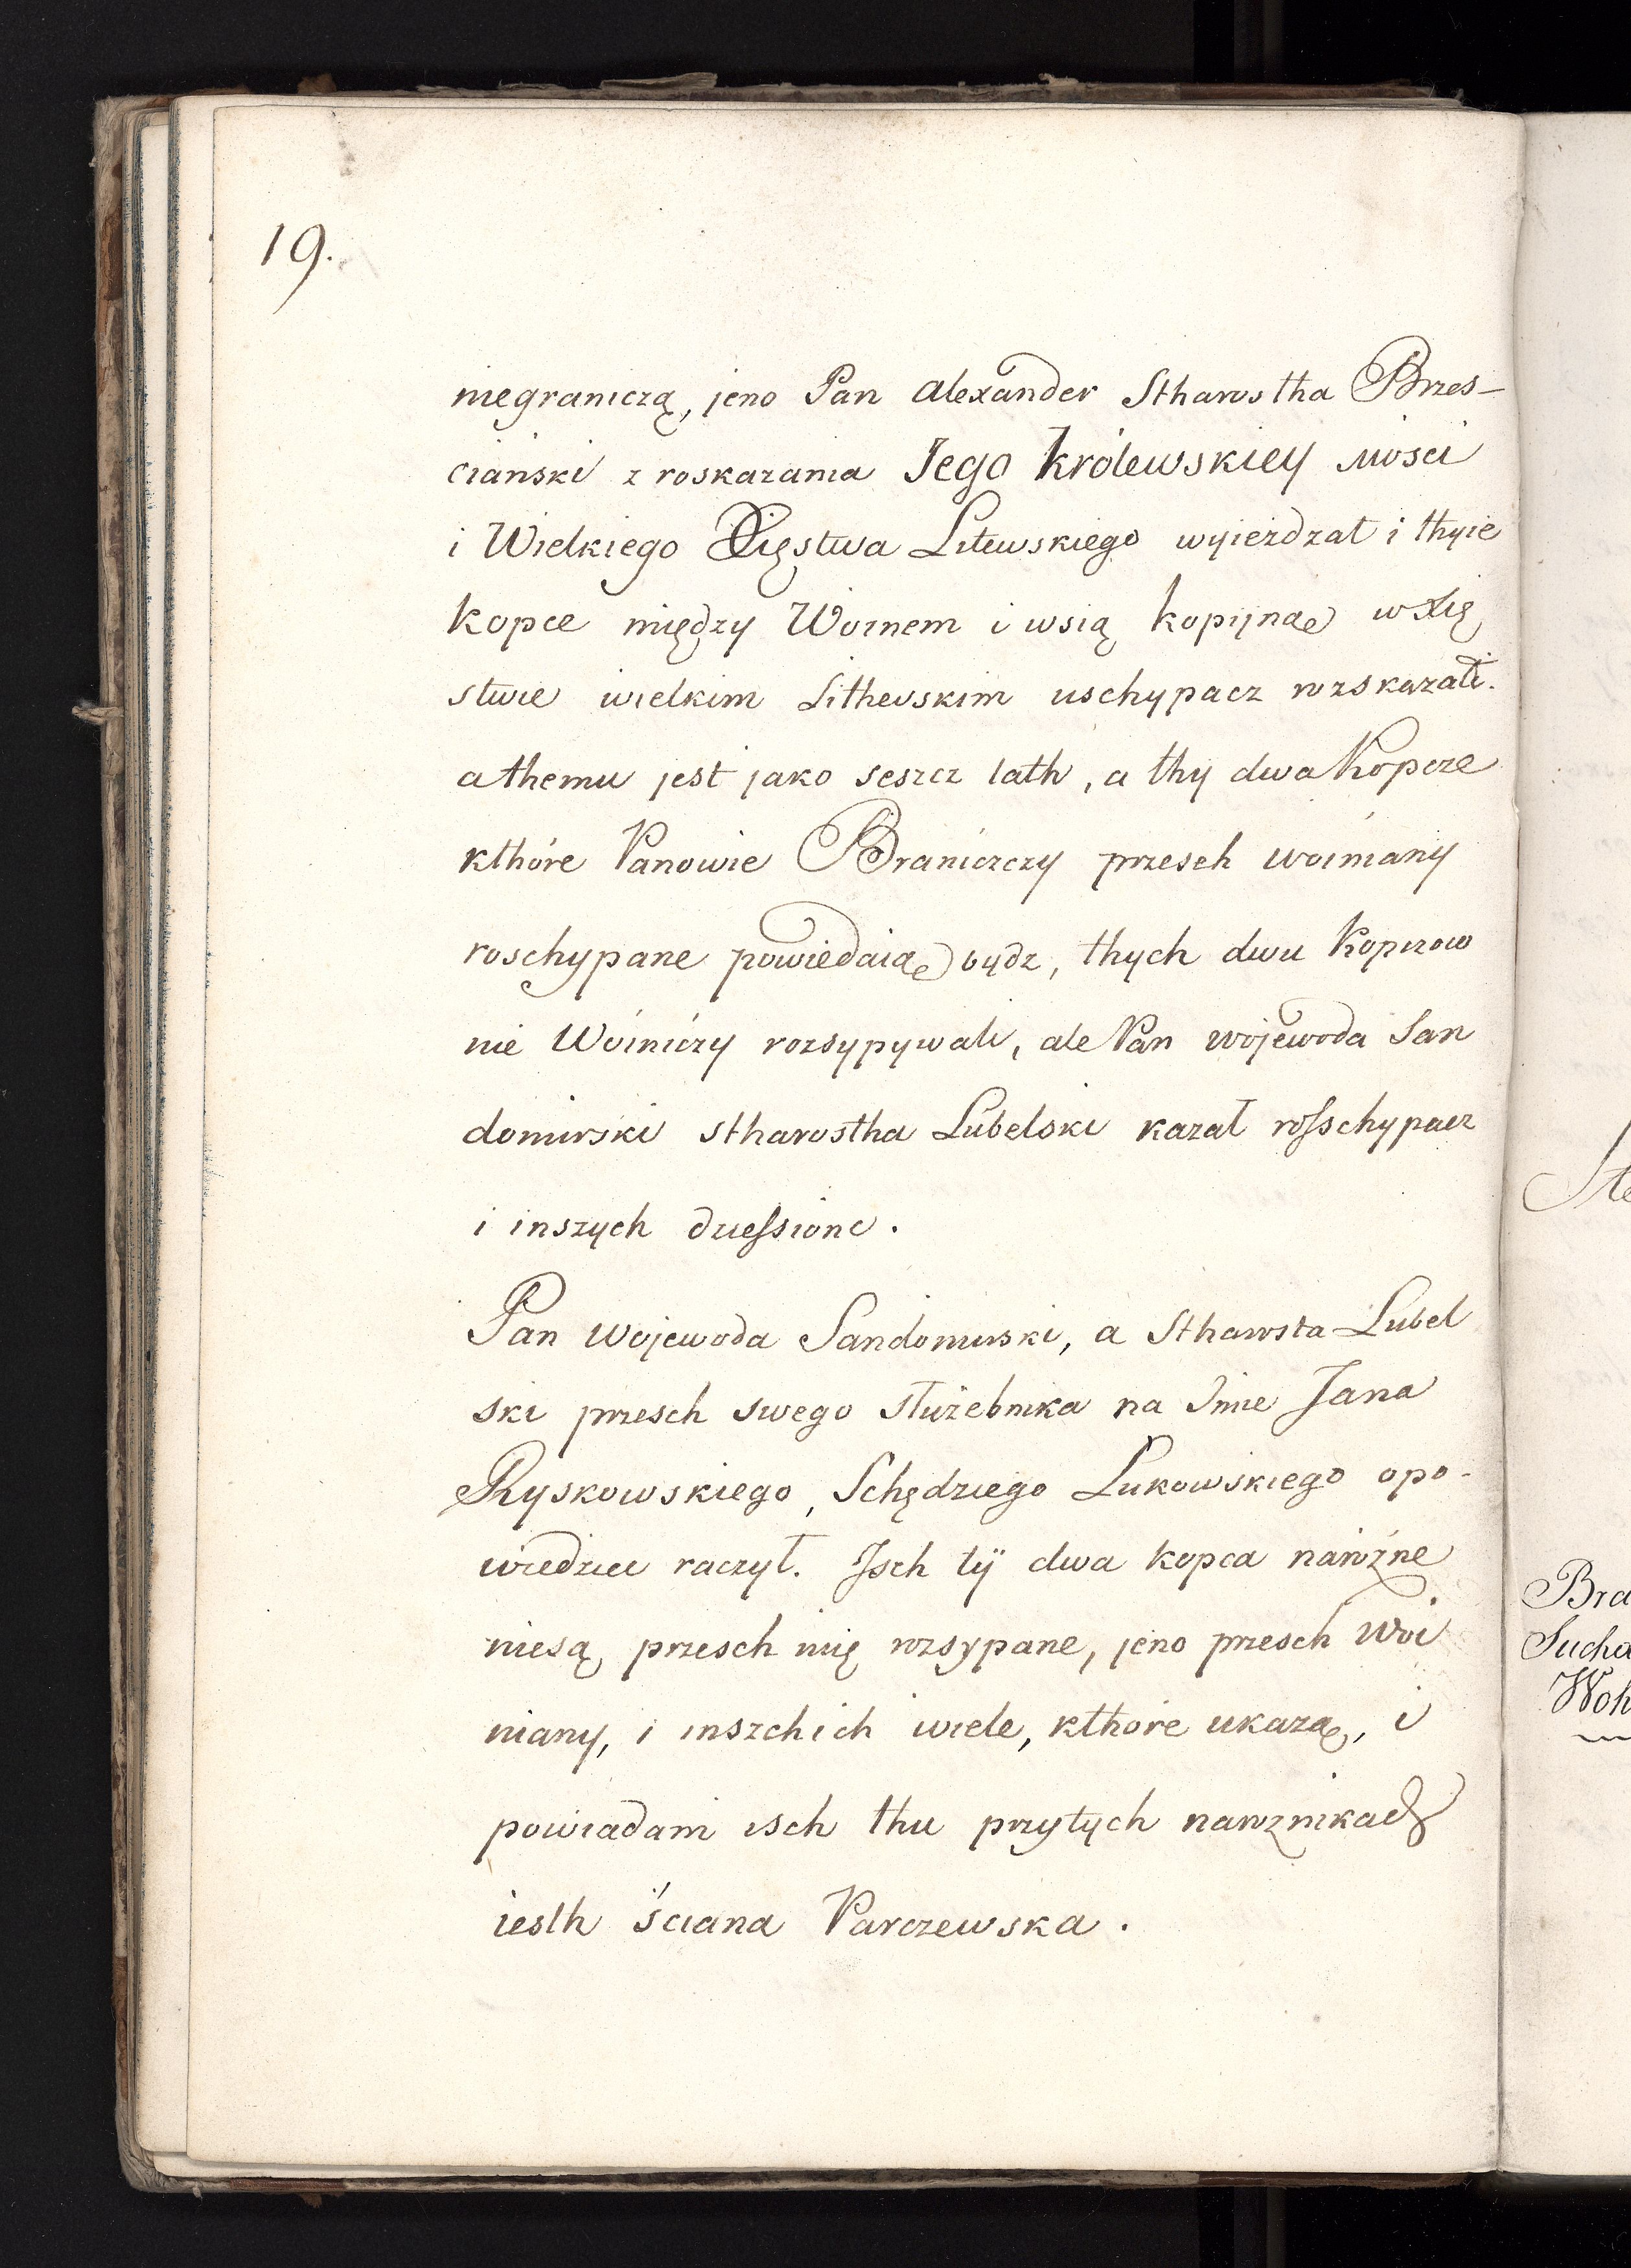 19.
niegraniczą, jeno Pan Alexander Stharostha Brzes-
ciański z roskazania Jego Królewskiey Mości
i Wielkiego Xięstwa Litewskiego wyieżdzał i thyie
kopce między Woinem i wsią kopijnąe w Xię
stwie wielkim Lithewskim uschypacz rozskazali.
a themu jest jako seszcz lath, a thy dwa Kopcze
kthóre Panowie Braniczczy przesch woiniany
roschypane powiedaiąe bydz, thych dwu Kopczow
nie Woiniczy rozsypywali, ale Pan wojewoda San
domirski stharostha Lubelski kazał rosschypacz
i inszych dziessionc.
Pan Wojewoda Sandomirski, a Stharosta Lubel
ski przesch swego służebnika na Imie Jana
Ryskowskiego, Schędziego Lukowskiego opo-
wiedziec raczył. Jsch tÿ dwa kopca narożne
niesą przesch mię rozsypane, jeno przesch Woi
niany, i inszchich wiele, kthore ukaząe, i
powiadam isch thu przytych narożnikach
iesth ściana Parczewska.
Ste
Bra
Sucha
Woh